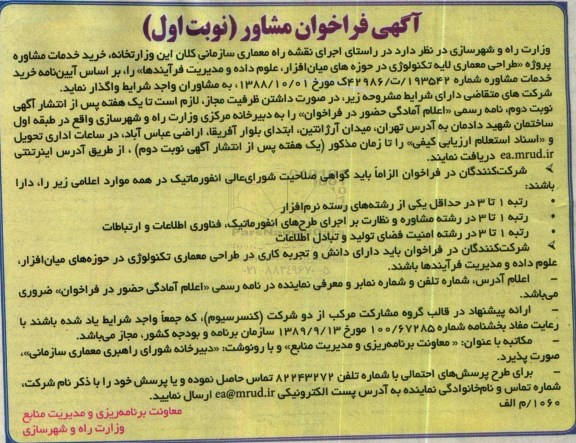 آگهی فراخوان مشاور (نوبت اول)
وزارت راه و شهرسازی در نظر دارد در راستای اجرای نقشه راه معماری سازمانی کلان این وزارتخانه، خرید خدمات مشاوره
پروژه «طراحی معماری لایه تکنولوژی در حوزه های میان‌افزار، علوم داده و مدیریت فرآیندها» را، بر اساس آیین‌نامه خرید
خدمات مشاوره شماره ۱۹۳۵۴۲/ت۴۲۹۸۶ک مورخ ۱۳۸۸/۱۰/۰۱، به مشاوران واجد شرایط واگذار نماید.
شرکت های متقاضی دارای شرایط مشروحه زیر، در صورت داشتن ظرفیت مجاز، لازم است تا یک هفته پس از انتشار آگهی
نوبت دوم، نامه رسمی «اعلام آمادگی حضور در فراخوان» را به دبیرخانه مرکزی وزارت راه و شهرسازی واقع در طبقه اول
ساختمان شهید دادمان به آدرس تهران، میدان آرژانتین، ابتدای بلوار آفریقا، اراضی عباس آباد، در ساعات اداری تحویل
و «اسناد استعلام ارزیابی کیفی» را تا زمان مذکور (یک هفته پس از انتشار آگهی نوبت دوم) ، از طریق آدرس اینترنتی
ea.mrud.ir دریافت نمایند.
شرکت‌کنندگان در فراخوان الزاماً باید گواهی صلاحیت شورای‌عالی انفورماتیک در همه موارد اعلامی زیر را، دارا
باشند:
• رتبه ۱ تا ۳ در حداقل یکی از رشته‌های رسته نرم‌افزار
• رتبه ۱ تا ۳ در رشته مشاوره و نظارت بر اجرای طرح‌های انفورماتیک، فناوری اطلاعات و ارتباطات
• رتبه ۱ تا ۳ در رشته امنیت فضای تولید و تبادل اطلاعات
شرکت‌کنندگان در فراخوان باید دارای دانش و تجربه کاری در طراحی معماری تکنولوژی در حوزه‌های میان‌افزار،
علوم داده و مدیریت فرآیندها باشند.
– اعلام آدرس، شماره تلفن و شماره نمابر و معرفی نماینده در نامه رسمی «اعلام آمادگی حضور در فراخوان» ضروری
می‌باشد.
– ارائه پیشنهاد در قالب گروه مشارکت مرکب از دو شرکت (کنسرسیوم)، که جمعاً واجد شرایط یاد شده باشند با
رعایت مفاد بخشنامه شماره ۱۰۰/۶۷۲۸۵ مورخ ۱۳۸۹/۹/۱۳ سازمان برنامه و بودجه کشور، مجاز می‌باشد.
– مکاتبه با عنوان: « معاونت برنامه‌ریزی و مدیریت منابع» و با رونوشت: «دبیرخانه شورای راهبری معماری سازمانی»،
صورت پذیرد.
– برای طرح پرسش‌های احتمالی با شماره تلفن ۸۲۲۴۳۲۷۲ تماس حاصل نموده و یا پرسش خود را با ذکر نام شرکت،
شماره تماس و نام‌خانوادگی نماینده به آدرس پست الکترونیکی ea@mrud.ir ارسال نمایید.
۱۰۶۰/م الف
معاونت برنامه‌ریزی و مدیریت منابع
وزارت راه و شهرسازی